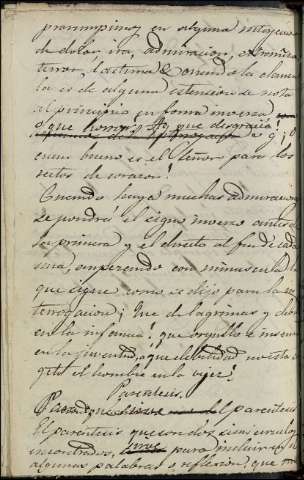 prorrumpimos en alguna interjecion
de dolor, ira, admiracion,
terror, lastima &. cuando la clausu
la es de alguna estencion se nota
al principio en forma inversa
o que hombre! que desgracia!
cuan bueno es el Señor para los
rectos de corazon!
Cuando haya muchas admiraciones
se pondrá el signo inverso antes de
la primera y el directo al fin de cada
una, empezando con minuscula la
que sigue como se dijo para la in
terrogacion ¡Que de lagrimas y
en la infancia! que orgullo e
en la juventud, o que debilidad no esta
el hombre en la vejez!
Parentesis.
el parentesis
El parentesis que son dos semicirculos
encontrados, sirve para incluir en
algunas palabras o reflexion, que